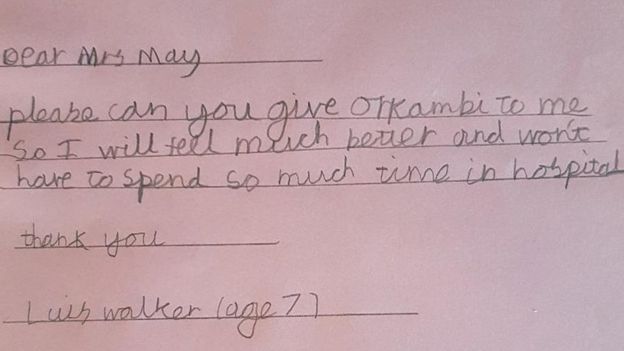 Dear Mrs May
please can you give Orkambi to me
so I will feel much better and won't
have to spend so much time in hospital
thank you
Luis walker (age 7)